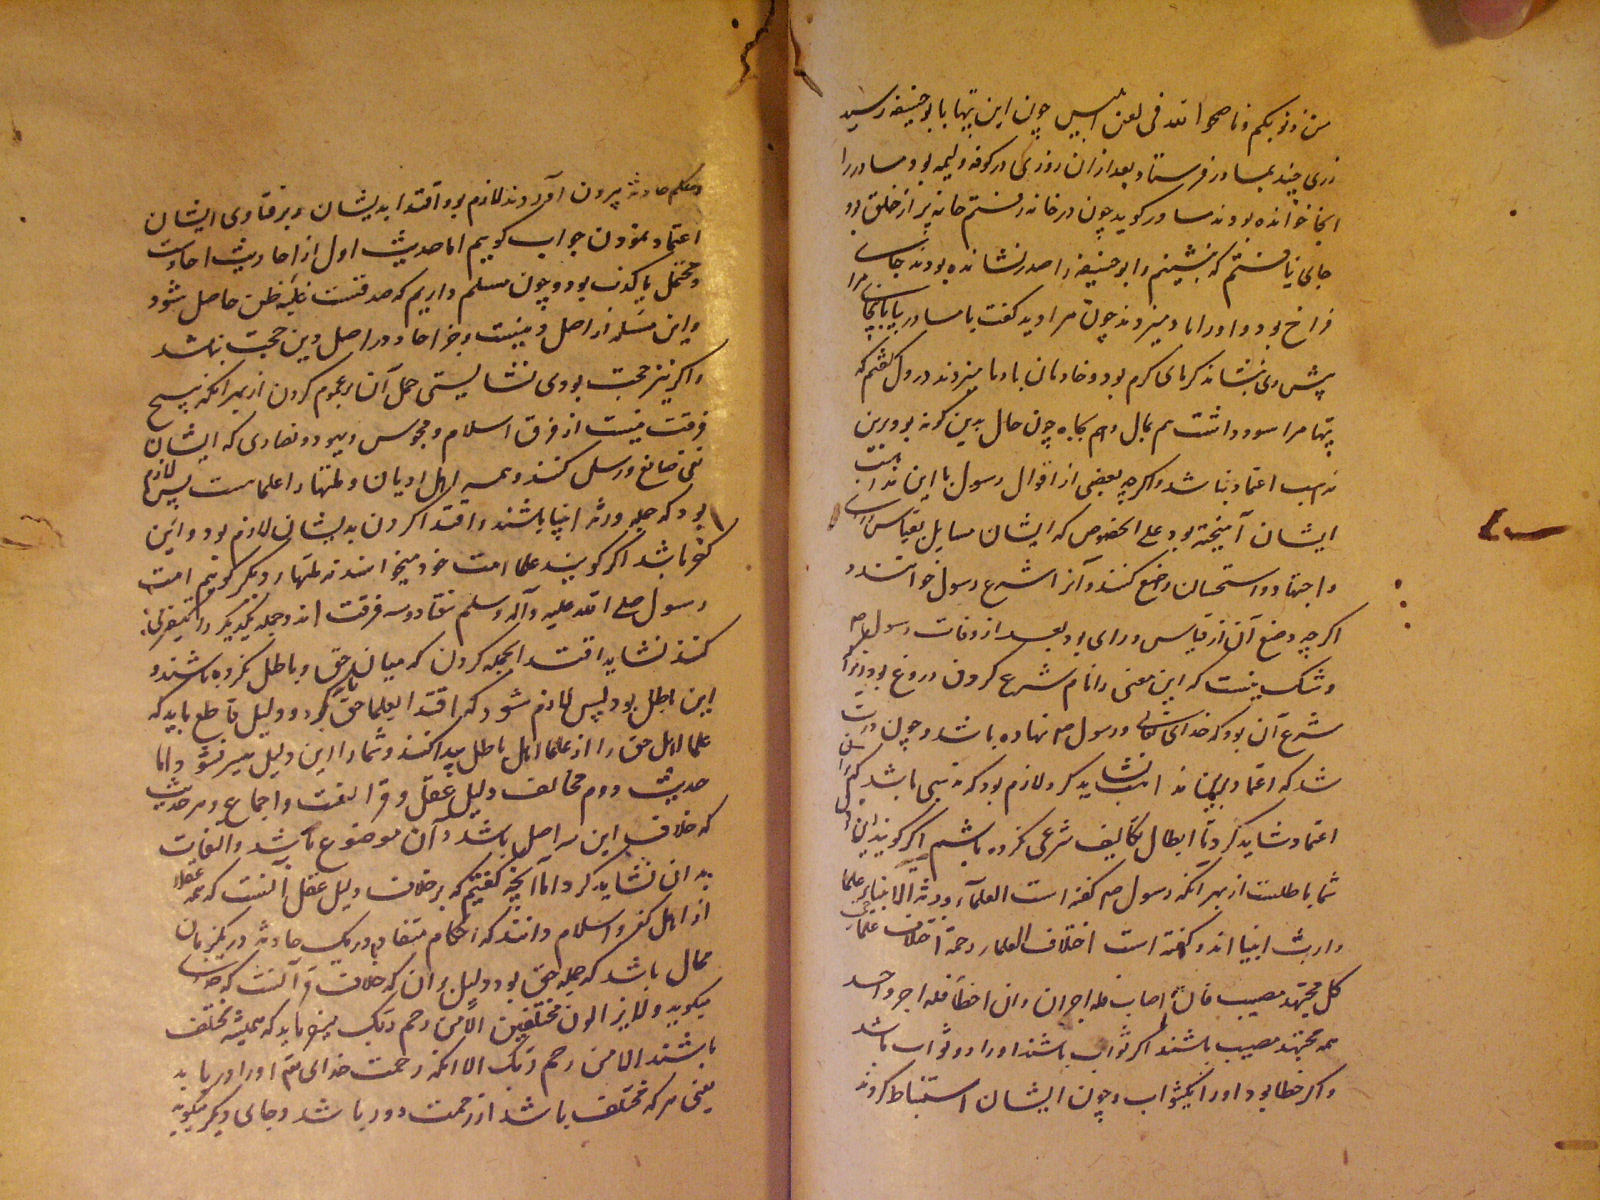 من ذنوبکم وناصحوا لله فی لعن ابلیس چون این بیتها بابوحنیفه رسید
زری چند بمساور فرستاد بعد ازان روزی در کوفه ولیمه بود مساور را
انجا خوانده بودند مساور کوید چون در خانه رفتم خانه پر از خلق بود
جای نیافتم که بنشینم و ابوحنیفه را صدر نشانده بودند جای
فراخ بود و اورا باد میزدند چون مرا دید کفت یا مساور بیا بیا اینجا مرا
پیش وی بنشاند کرمای کرم بود و خادمان باد ما میزدند در دل کفتم که
بیتها مرا سود داشت هم بمال و هم بجاه چون حال بدین کونه بود برین
مذهب اعتماد نباشد و اکرچه بعضی از اقوال رسول با این مذاهب
ایشان آمیخته بود علی الخصوص که ایشان مسایل بقیاس و رای
و اجتهاد و استحسان وضع کنند و آنرا شرع رسول خوانند و
اکرچه وضع آن از قیاس و رای بود بعد از وفات رسول
و شک نیست که این معنی را نام شرع کردن دروغ بود زیرا
شرع آن بود که خدای تعالی و رسول نهاده باشد و چون درست
شد که اعتماد برین مذاهب نشاید کرد لازم بود که مذهبی باشد که بران
اعتماد شاید کرد تا ابطال تکالیف شرعی نکرده باشیم اکر کویند این
شما باطلست از بهر انکه رسول کفته است العلمآء ورثة الانبیاء علما
وارث انبیا اند و کفته است اختلاف العلماء رحمة اختلاف علما
کل مجتهد مصیب فان اصاب فله اجران وان اخطأ فله اجر واحد
همه مجتهد مصیب باشند اکر ثواب باشند اورا دو ثواب باشد
و اکر خطا بود اورا یک ثواب و چون ایشان استنباط کردند
و حکم حادثه بیرون آوردند لازم بود اقتدا بدیشان و بر فتاوی ایشان
اعتماد نمودن جواب کوییم اما حدیث اول از احادیث احادست
و محتمل یا کذب بود و چون مسلم داریم که صدقست غلبه ظن حاصل شود
و این مسئله از اصل دینست و خبر احاد در اصل دین حجت نباشد
و اکر نیز حجت بودی نشایستی حمل آن بر عموم کردن از بهر انکه هیچ
فرقت نیست از فرق اسلام و مجوس و یهود و نصاری که ایشان
نفی صانع و رسل کنند و همه اهل ادیان و ملتها را علماست پس لازم
بود که جمله ورثه انبیا باشند و اقتدا کردن بدیشان لازم بود و این
کفر باشد اکر کویند علما امت خود میخواستند نه ملتهاء دیکر کوییم امت
رسول صلی الله علیه وآله وسلم هفتاد و سه فرقت اند و جمله یکدیکر را تکفیر می
کنند نشاید اقتدا بجمله کردن که میان حق و باطل نکرده باشند و
این باطل بود پس لازم شود که اقتدا بعلما حق کرد و دلیل قاطع باید که
علما اهل حق را از علما اهل باطل پیدا کند و شما را این دلیل میسر نشود اما
حدیث دوم مخالف دلیل عقل و قرانست و اجماع و هر حدیث
که خلاف این سه اصل باشد آن موضوع باشد و التفات
بدان نشاید کرد اما آنچه کفتیم که بر خلاف دلیل عقل آنست که همه عقلا
از اهل کفر و اسلام دانند که احکام متضاد در یک حادثه در یک زمان
محال باشد که جمله حق بود و دلیل بران که خلاف قرآنست که خدا
میکوید ولایزالون مختلفین الا من رحم ربک میفرماید که همیشه مختلف
باشند الا من رحم ربک الا انکه رحمت خدای اورا دریابد
یعنی هر که مختلف باشد از رحمت دور باشد و جای دیکر میکوید